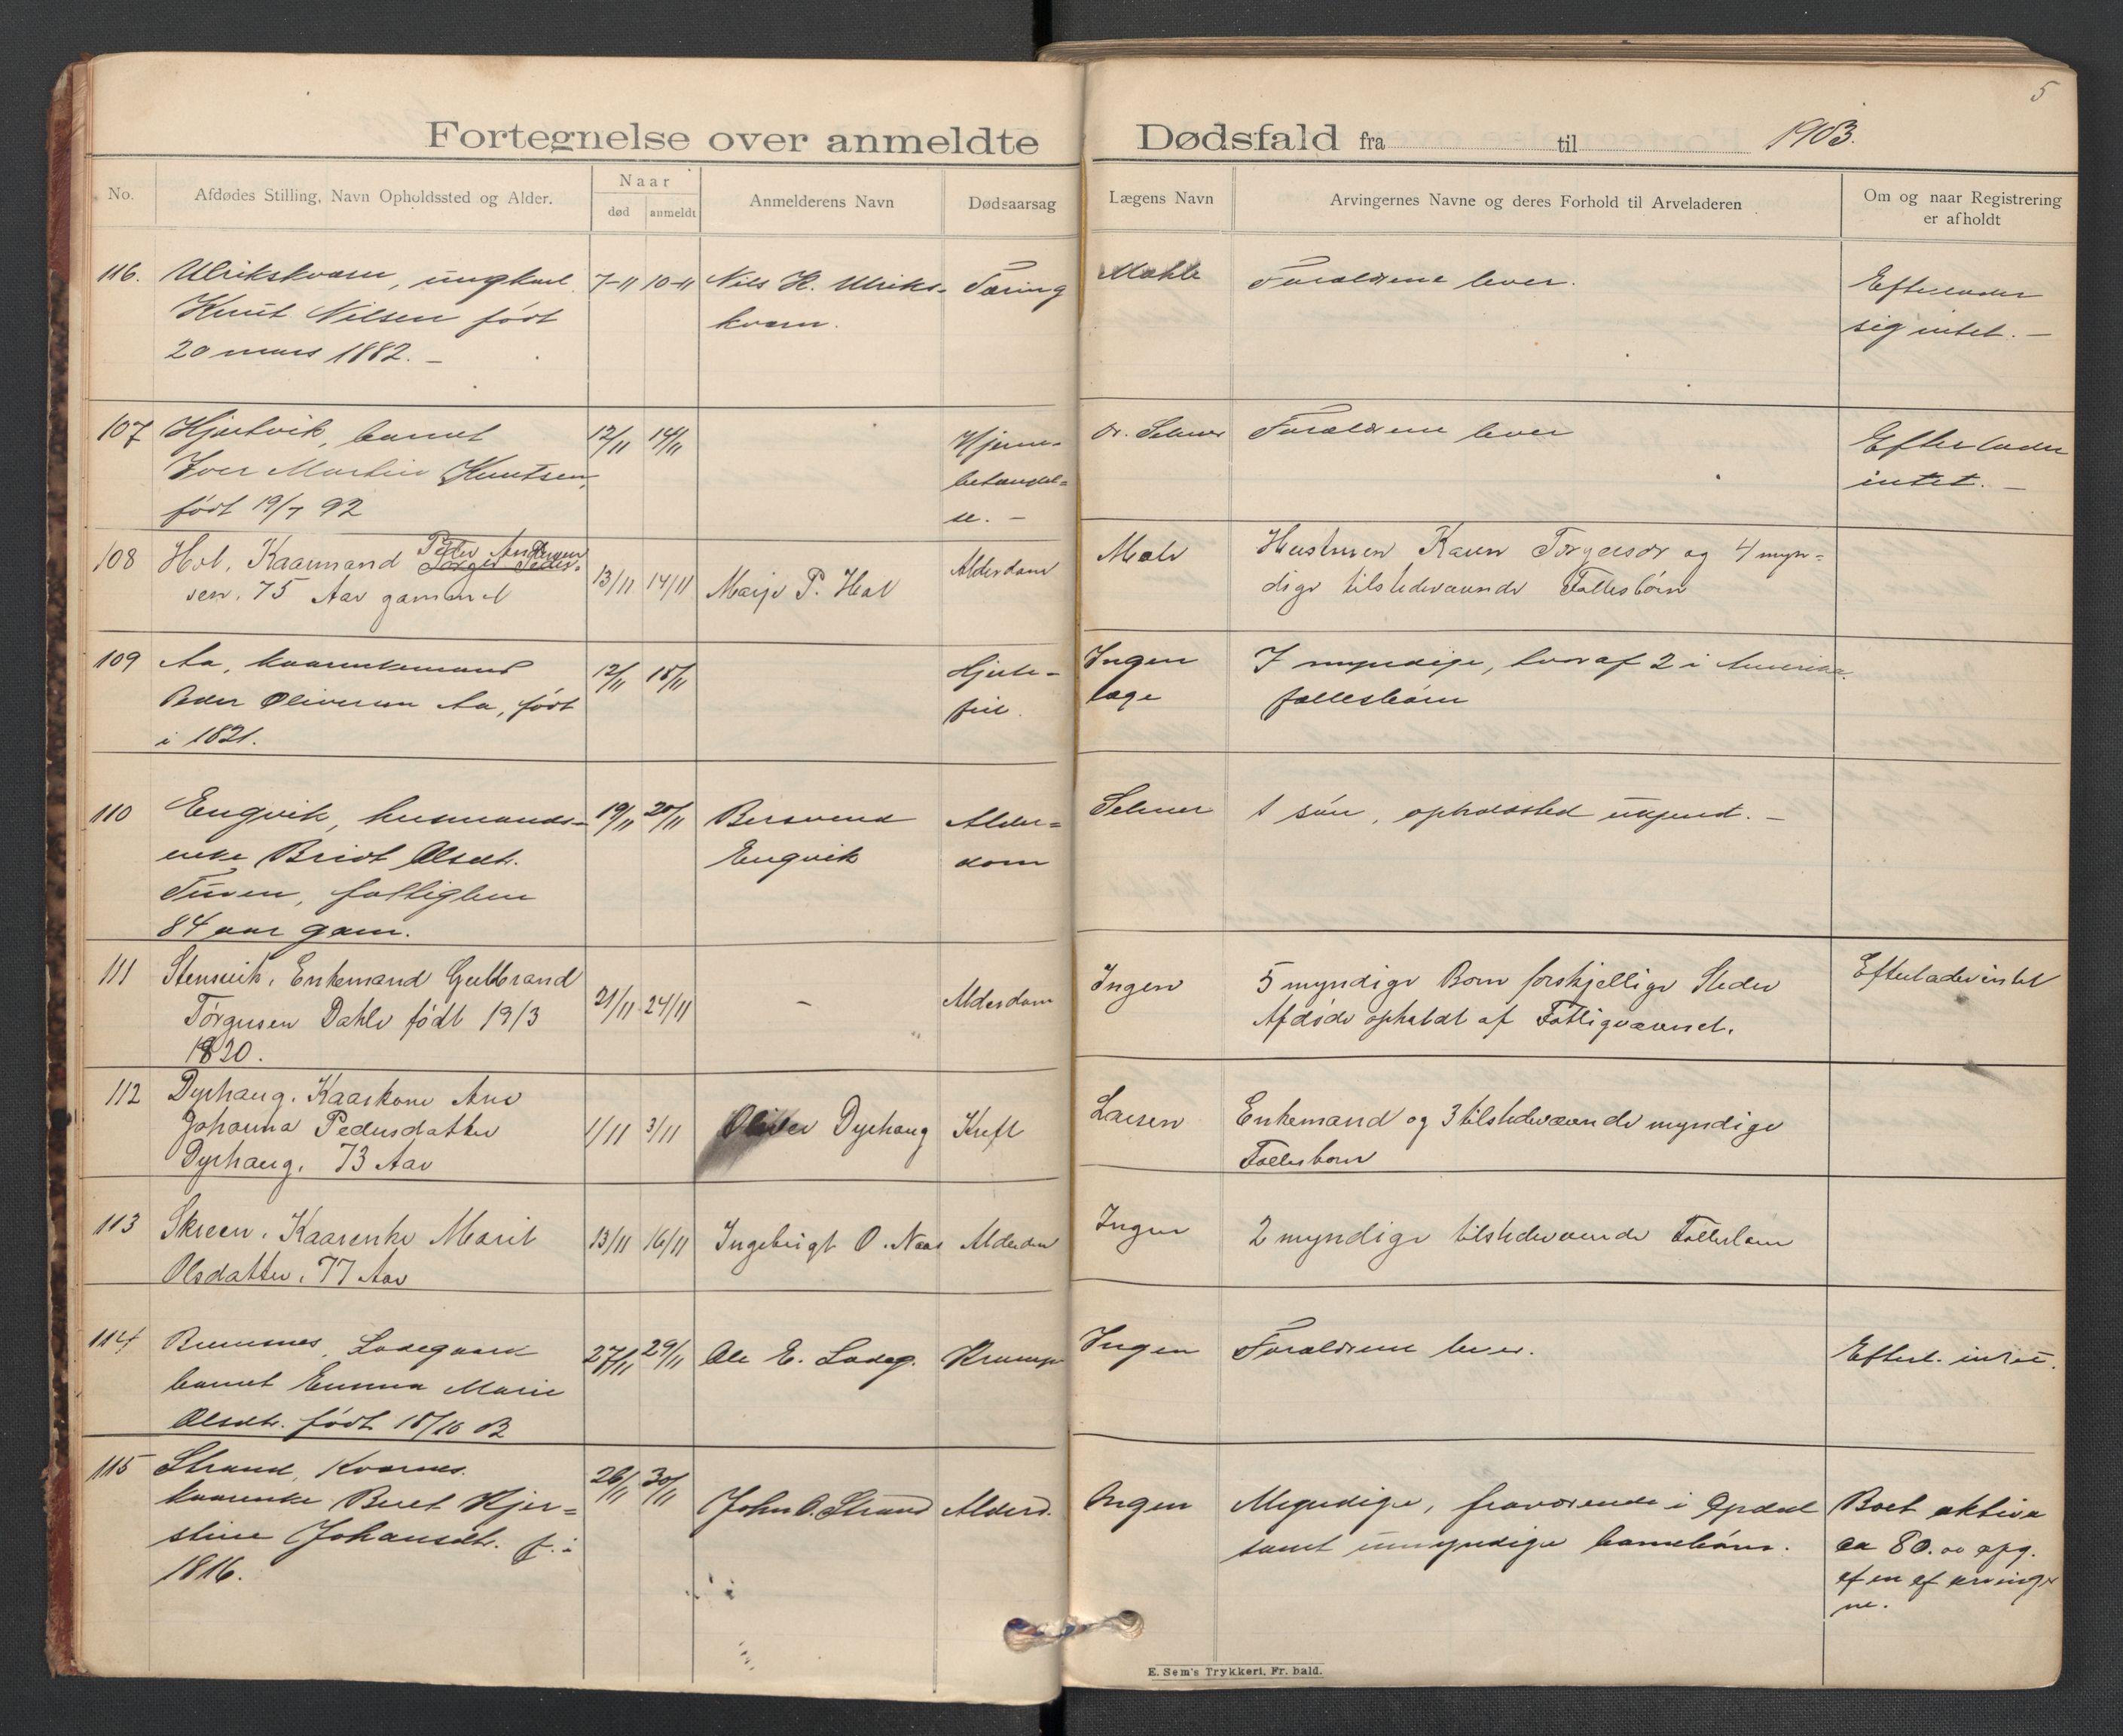 5
Fortegnelse over anmeldte Dødsfald fra til 1903.
No.
Afdødes Stilling, Navn Opholdssted og Alder.
Naar
død
anmeldt
Anmelderens Navn
Dødsaarsag
Lægens Navn
Arvingernes Navne og deres Forhold til Arveladeren
Om og naar Registrering
er afholdt
116. Ulrikskværn, ungkarl 7-11 10-11 Nils H. Ulriks- Tæring Forældrene lever. Efterlader
Knut Nilsen født kværn. sig intet. –
20 mars 1882. –
107 barnet 12/11 14/11 Hjerne- Dr. Selmer Forældrene lever Efterlader
Iver Martin Knutsen, betændel= intet. –
født 19/7 92 se. –
108 Hol, Kaarmand Peder Andersen
Torger Peder-
sen, 75 Aar gammel 13/11 14/11 Marje P. Hol Alderdom Hustruen Karen Torgersdr og 4 myn=
dige tilstedeværende Fællesbørn
109 Aa, kaarenkemand 12/11 18/11 Hjerte- Ingen 7 myndige, hvoraf 2 i Amerika.
Peder Oliversen Aa, født feil. læge fællesbørn
i 1821.
110 Engvik, husmands- 19/11 20/11 Bersvend Alder= Selmer 1 søn, opholdssted ukjendt. –
enke Olsdtr. Engvik dom
fattiglem
84 aar gam.
111 Enkemand Gulbrand 21/11 24/11 – Alderdom Ingen 5 myndige Børn forskjellige Steder Efterlader intet
Torgersen Dahle født 19/3 Afdøde opholdt af Fattigvæsenet.
1820.
112 Dyrhaug. Kaarkone Ane
Johanna Pedersdatter 1/11 3/11 Oliver Dyrhaug Kræft Larsen Enkemand og 3 tilstedeværende myndige
Dyrhaug. 73 Aar Fællesbørn
113 Kaarenke Marit 13/11 16/11 Ingebrigt O. Næs Alderdom Ingen 2 myndige tilstedeværende Fællesbørn
Olsdatter. 77 Aar
114 Bremsnes, Ladegaard 27/11 29/11 Ole E. Ladeg. Krampe Ingen Forældrene lever. Efterl. intet.
barnet Emma Marie
Olsdtr. født 18/10 03
115 Strand, Kværnes. 26/11 30/11
kaarenke Beret Kjer= John O. Strand Alderd. Ingen Myndige, fraværende i Opdal Boet aktiva
stine Johansdtr. f. i samt umyndige barnebørn. ca 80.00 opg.
1816. af en af arvinger
ne.
E. Sem's Trykkeri, Fr. hald.